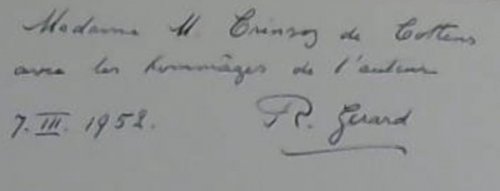 Madame M. Crinsoz de Cottens
avec les hommages de l'auteur
7. III. 1952. R. Gerard